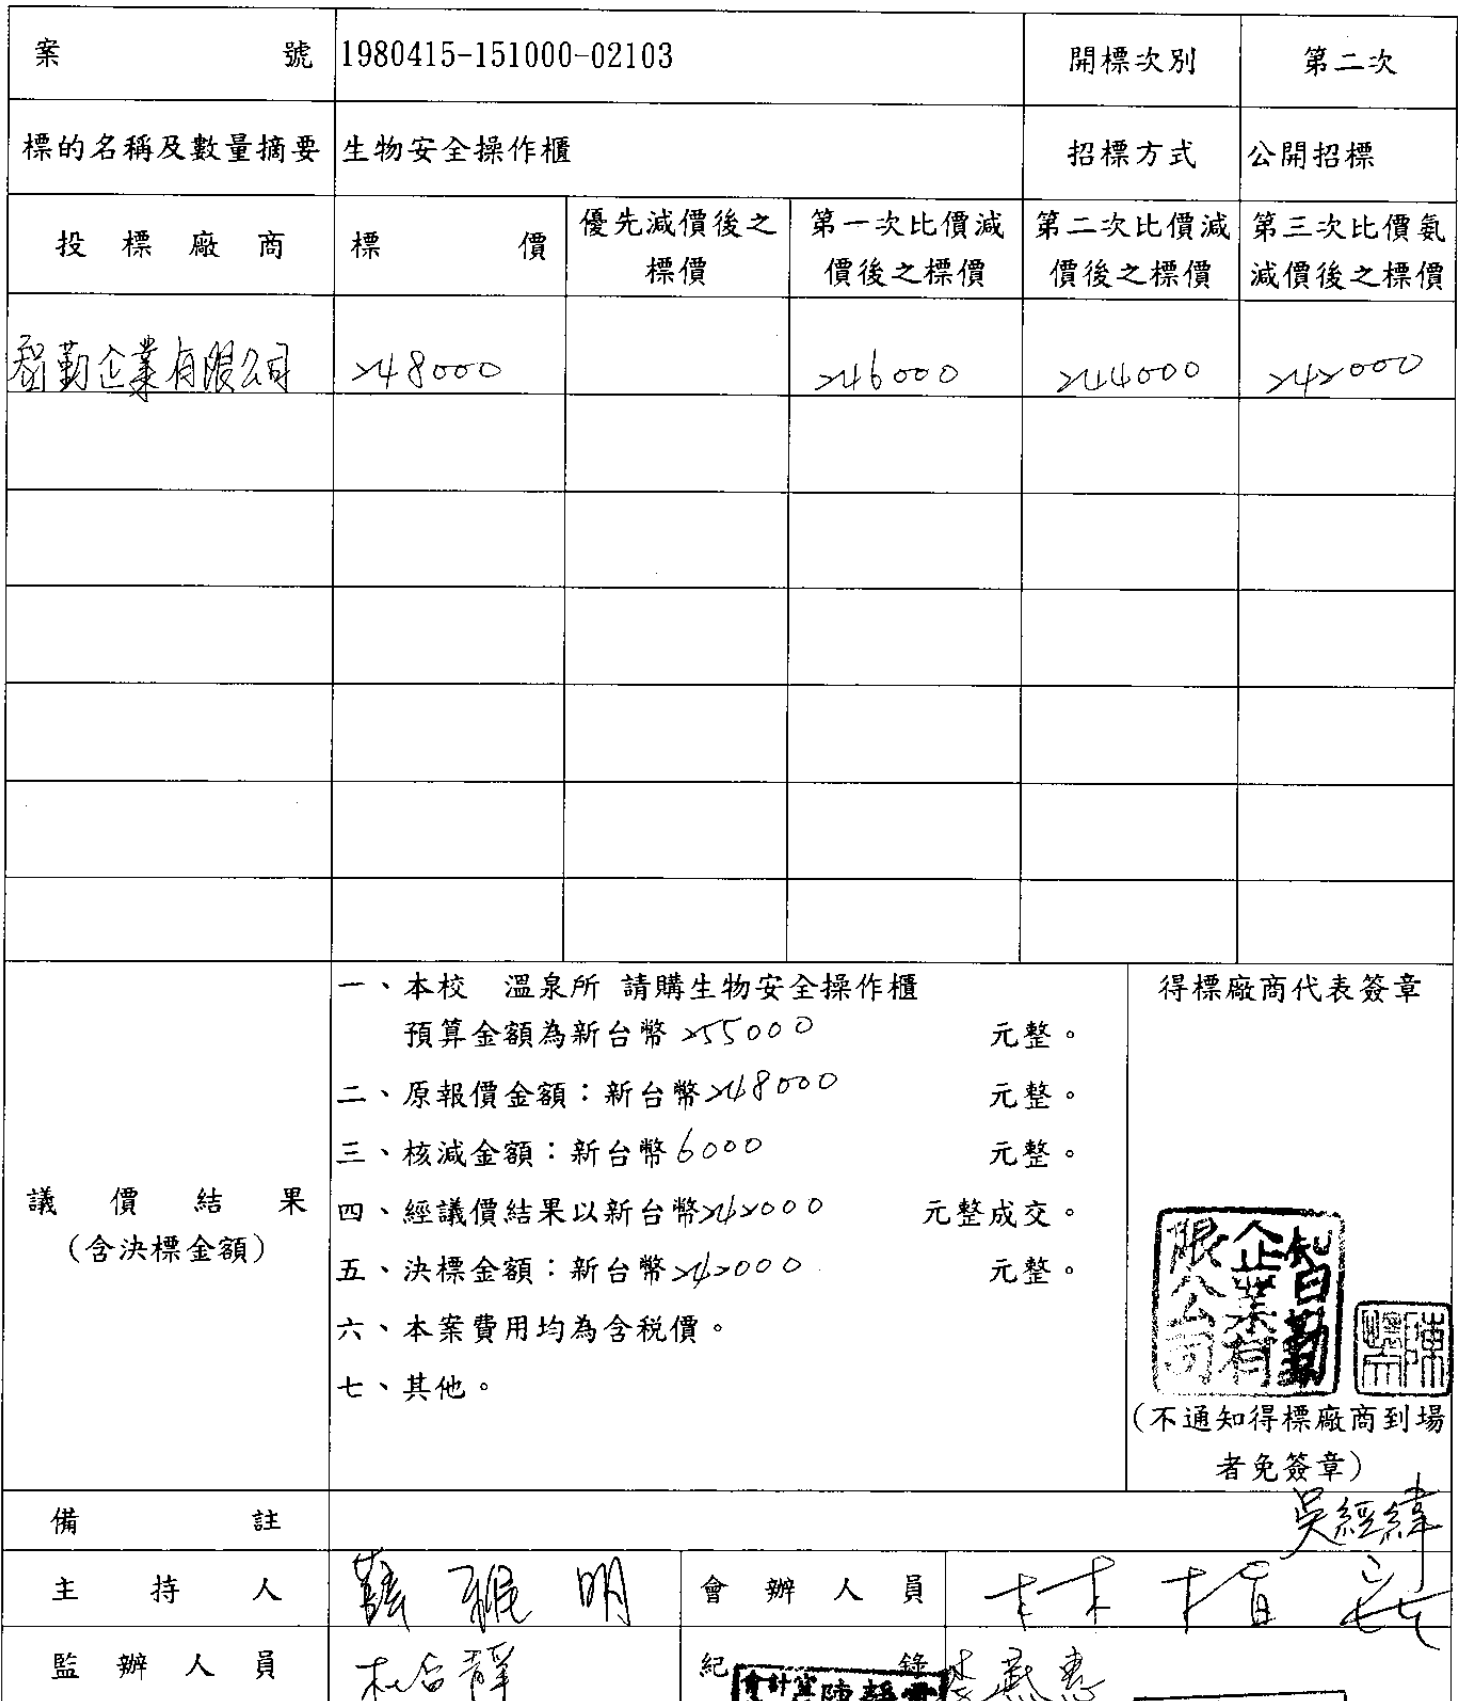 案 號 1980415-151000-02103 開標次別 第二次
標的名稱及數量摘要 生物安全操作櫃 招標方式 公開招標
投標廠商 標價 優先減價後之標價 第一次比價減價後之標價 第二次比價減價後之標價 第三次比價氨減價後之標價
智勤企業有限公司 248000 246000 244000 242000
一、本校 溫泉所 請購生物安全操作櫃
預算金額為新台幣 255000 元整。
二、原報價金額：新台幣248000 元整。
三、核減金額：新台幣6000 元整。
議價結果
(含決標金額)
四、經議價結果以新台幣242000 元整成交。
五、決標金額：新台幣242000 元整。
六、本案費用均為含稅價。
七、其他。
得標廠商代表簽章
智勤企業有限公司
(不通知得標廠商到場
者免簽章)
吳經緯
備註
主持人 明 會辦人員 林
監辦人員 靜 紀錄